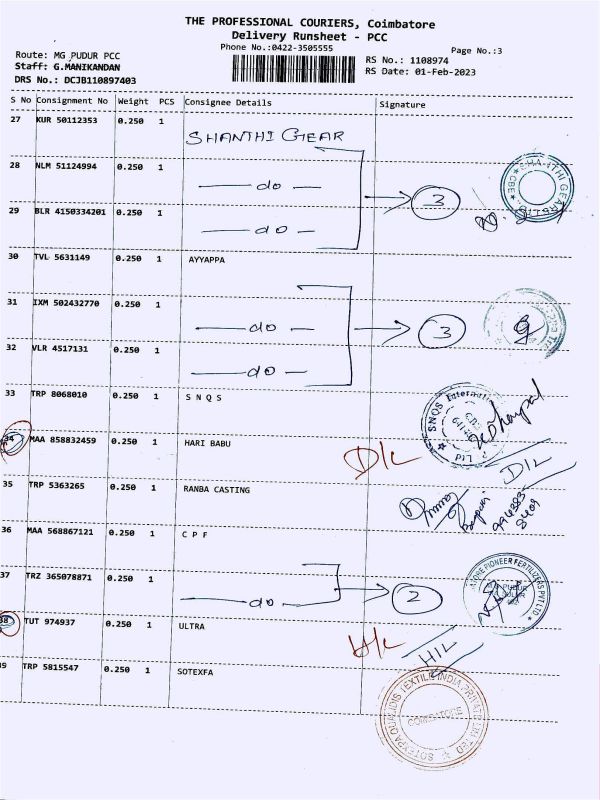 THE PROFESSIONAL COURIERS, Coimbatore
Delivery Runsheet - PCC
Phone No.:0422-3505555
Page No.:3
Route: MG PUDUR PCC
Staff: G.MANIKANDAN
DRS No.: DCJB110897403
RS No.: 1108974
RS Date: 01-Feb-2023
S No Consignment No Weight PCS Consignee Details Signature
27 KUR 50112353 0.250 1 SHANTHI GEAR
28 NLM 51124994 0.250 1 do
3
29 BLR 4150334201 0.250 1 do
30 TVL 5631149 0.250 1 AYYAPPA
31 IXM 502432770 0.250 1 do
3
32 VLR 4517131 0.250 1 do
33 TRP 8068010 0.250 1 S N Q S
34 MAA 858832459 0.250 1 HARI BABU D/L
D/L
35 TRP 5363265 0.250 1 RANBA CASTING
994383
8409
36 MAA 568867121 0.250 1 C P F
37 TRZ 365078871 0.250 1 do
2
38 TUT 974937 0.250 1 ULTRA H/L
H/L
39 TRP 5815547 0.250 1 SOTEXFA
COIMBATORE